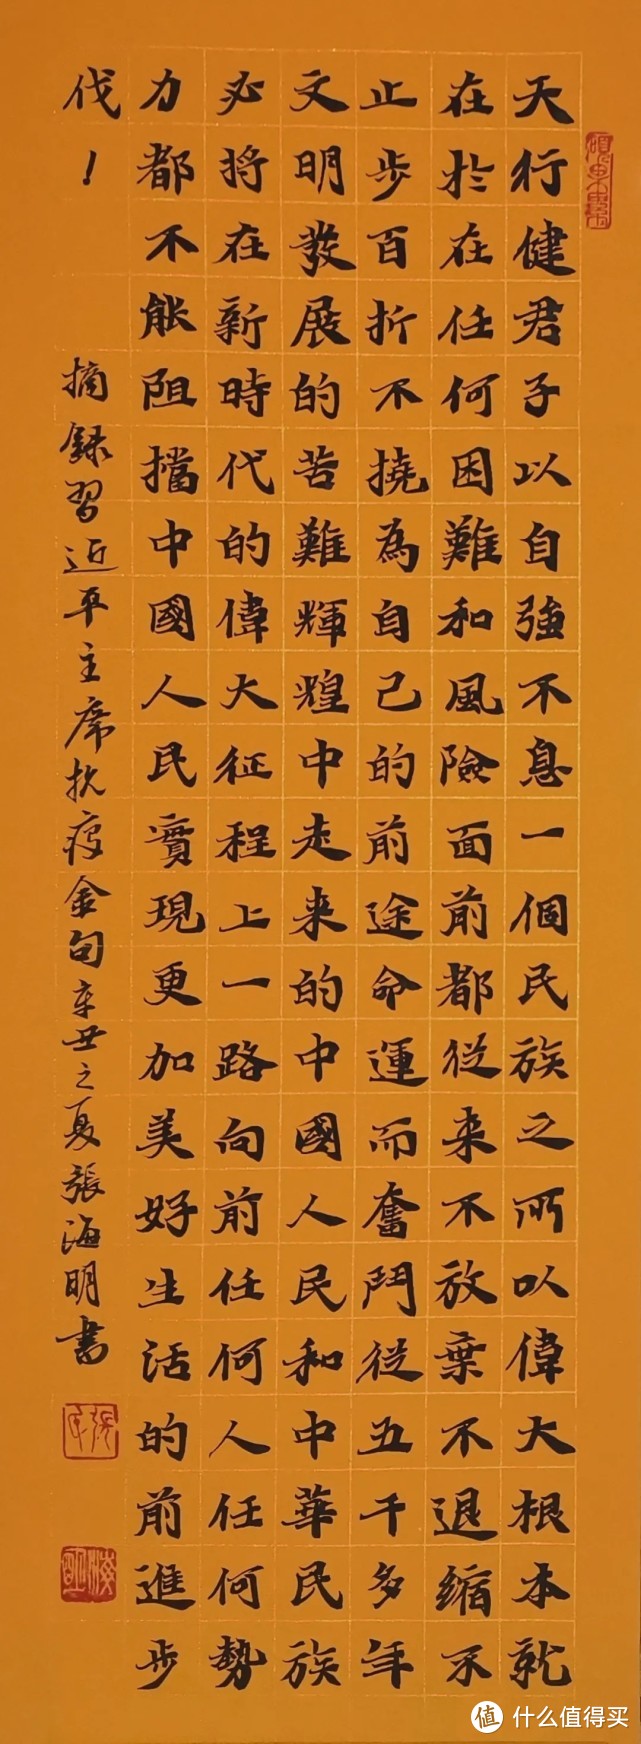 天行健君子以自強不息一個民族之所以偉大根本就
在於在任何困難和風險面前都從来不放棄不退縮不
止步百折不撓為自己的前途命運而奮鬥從五千多年
文明發展的苦難輝煌中走来的中國人民和中華民族
必將在新時代的偉大征程上一路向前任何人任何勢
力都不能阻擋中國人民實現更加美好生活的前進步
伐！
摘録習近平主席抗疫金句辛丑之夏張海明書
值 什么值得买